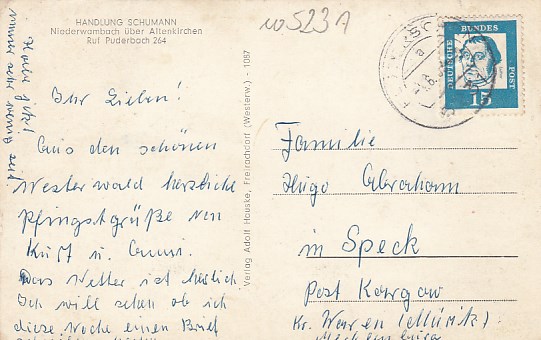 HANDLUNG SCHUMANN
Niederwambach über Altenkirchen
Ruf Puderbach 264
w 523 A
DEUTSCHE BUNDES POST
15
Habe
immer sehr wenig Zeit.
Ihr Lieben!
Aus dem schönen
Westerwald herzliche
Pfingstgrüße von
Kurt u. Anni.
Das Wetter ist herrlich.
Ich will sehen ob ich
diese Woche einen Brief
Verlag Adolf Hauske, Freirachdorf (Westerw.) - 1087
Familie
Hugo Abraham
in Speck
Post Kargow
Kr. Waren (Müritz)
Mecklenburg